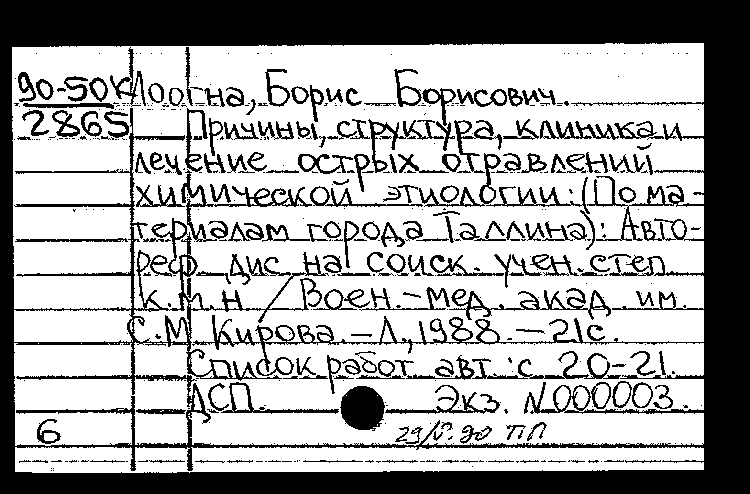 90-50К Лоогна, Борис Борисович.
2865 Причины, структура, клиника и
лечение острых отравлений
химической этиологии: (По ма-
териалам города Таллина): Авто-
реф. дис на соиск. учен. степ.
к.м.н. / Воен.-мед. акад. им.
С.М. Кирова. - Л., 1988. - 21с.
Список работ авт.: с 20-21.
ДСП. Экз. N000003.
6 90 ПП